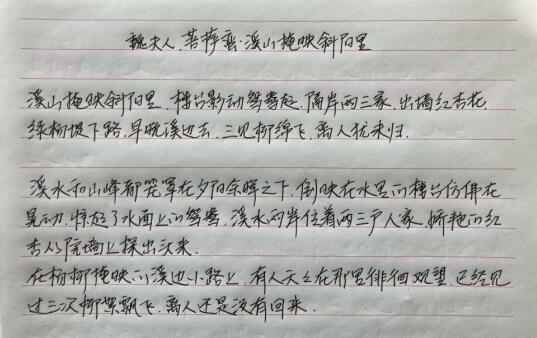 魏夫人.菩萨蛮·溪山掩映斜阳里
溪山掩映斜阳里.楼台影动鸳鸯起.隔岸两三家.出墙红杏花.
绿杨堤下路.早晚溪边去.三见柳绵飞.离人犹未归.
溪水和山峰都笼罩在夕阳余晖之下.倒映在水里的楼台仿佛在
晃动.惊起了水面上的鸳鸯.溪水两岸住着两三户人家.娇艳的红
杏从院墙上探出头来.
在杨柳掩映的溪边小路上.有人天天在那里徘徊观望.已经见
过三次柳絮飘飞.离人还是没有回来.